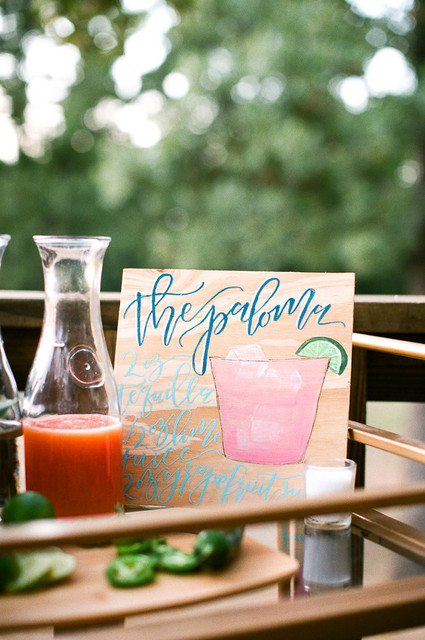 the paloma
2oz
tequilla
.5oz lime
juice
2oz grapefruit